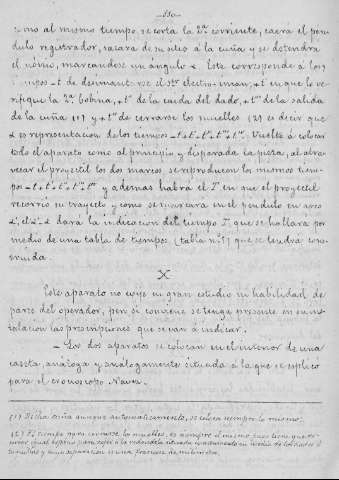 -110-
como al mismo tiempo se corta la 2ª corriente, caerá el pen-
dulo registrador, sacará de su sitio á la cuña y se detendrá
el nónio, marcandose un ángulo α. Este corresponde á los
tiempos -t de desimantarse el 1er electro-iman, +t' en que lo ve-
rifique la 2ª bobina, +t'' de la caida del dado, +t''' de la salida
de la cuña (1) y +t'''' de cerrarse los muelles (2) es decir que
α es representacion de los tiempos -t+t'+t''+t'''+t''''. Vuelto á colocar
todo el aparato como al principio y disparada la pieza, al atra-
vesar el proyectil los dos marcos se reproducen los mismos tiem-
pos -t+t'+t''+t'''+t'''' y además habrá el T en que el proyectil
recorrió su trayecto y como se marcará en el pendulo un arco
α', el α'-α dará la indicacion del tiempo T que se hallará por
medio de una tabla de tiempos (tabla nº 1) que se tendrá cons-
truida.
X
Este aparato no exije un gran estudio ni habilidad de
parte del operador, pero si conviene se tenga presente en su ins-
talacion las prescripciones que se van á indicar.
- Los dos aparatos se colocan en el interior de una
caseta, análoga y análogamente situada á la que se esplicó
para el cronoscopo Navez.
(1) Dicha cuña aunque automaticamente, se coloca siempre lo mismo.
(2) El tiempo para cerrarse los muelles, es siempre el mismo pues tiene que re-
correr igual espacio para